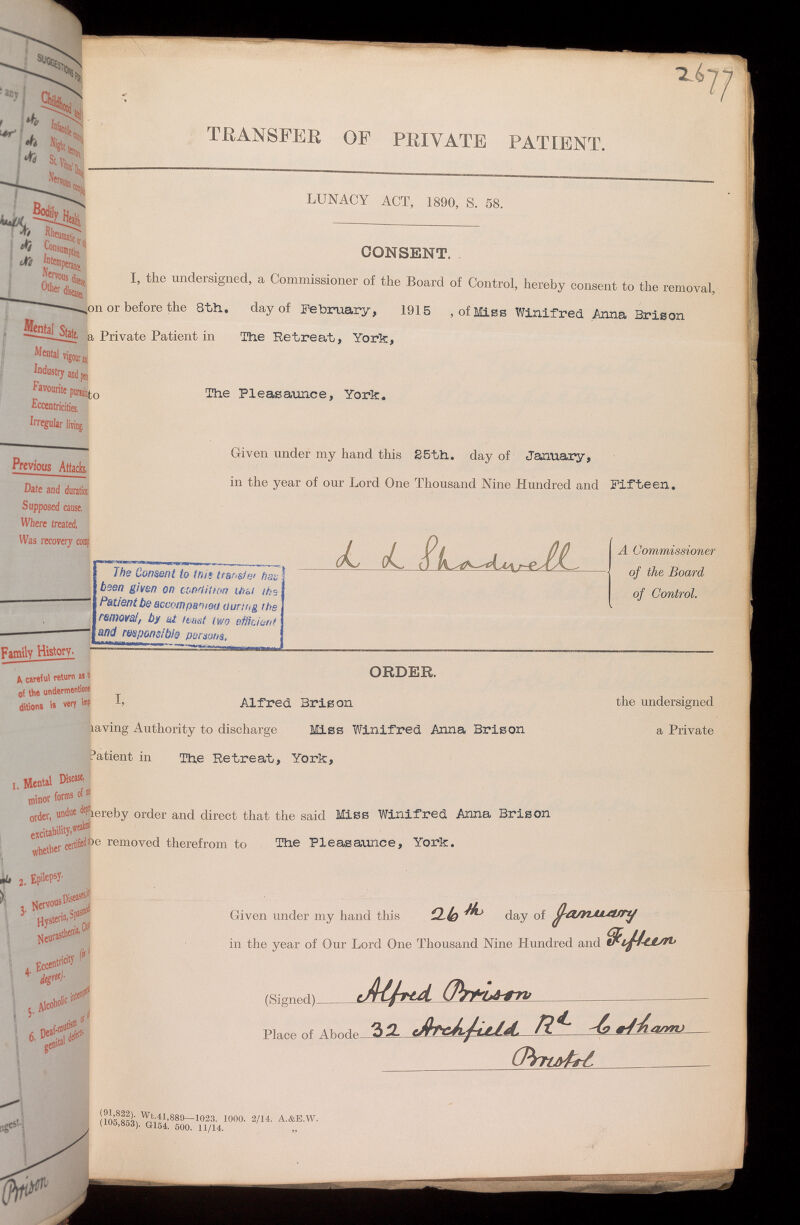 2677
TRANSFER OF PRIVATE PATIENT.
LUNACY ACT, 1890, S. 58.
CONSENT.
I, the undersigned, a Commissioner of the Board of Control, hereby consent to the removal,
on or before the 8th. day of February, 1915 , of Miss Winifred Anna Brison
a Private Patient in The Retreat, York,
to The Pleasaunce, York.
Given under my hand this 25th. day of January,
in the year of our Lord One Thousand Nine Hundred and Fifteen.
L L Shadwell
A Commissioner
of the Board
of Control.
The Consent to this transfer has
been given on condition that the
Patient be accompanied during the
removal, by at least two efficient
and responsible persons.
ORDER.
I, Alfred Brison the undersigned
having Authority to discharge Miss Winifred Anna Brison a Private
Patient in The Retreat, York,
hereby order and direct that the said Miss Winifred Anna Brison
be removed therefrom to The Pleasaunce, York.
Given under my hand this 26th day of January
in the year of Our Lord One Thousand Nine Hundred and Fifteen
(Signed) Alfred Brison
Place of Abode 32 Archfield Rd Cotham
Bristol
(91,822). Wt.41,889—1023. 1000. 2/14. A.&E.W.
(105,853). G154. 500. 11/14. „
SUGGESTIONS
any
Childhood and
No Infantile
No Night terrors
No St. Vitus'
Nervous
Bodily Health.
No Rheumatic
No Consumption
No Intemperance
Nervous disease
Other diseases
Mental State.
Mental vigour
Industry and
Favourite pursuits
Eccentricities.
Irregular living.
Previous Attacks.
Date and duration
Supposed cause.
Where treated.
Was recovery
Family History.
A careful return as
of the undermentioned
ditions is very
1. Mental Disease,
minor forms of
order, undue
excitability,
whether certified
2. Epilepsy.
3. Nervous Diseases,
Hysteria,
Neurasthenia,
4. Eccentricity
degree).
5. Alcoholic
6. Deaf-mutism or
genital defects.
Brison